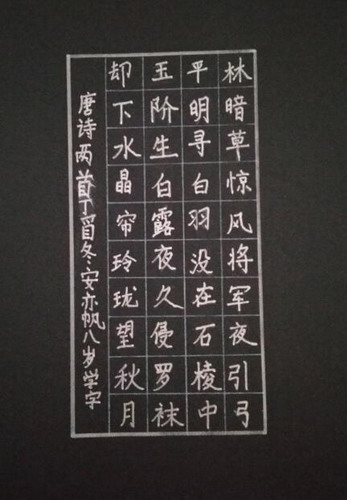 林暗草惊风将军夜引弓
平明寻白羽没在石棱中
玉阶生白露夜久侵罗袜
却下水晶帘玲珑望秋月
唐诗两首丁酉冬安亦帆八岁学字